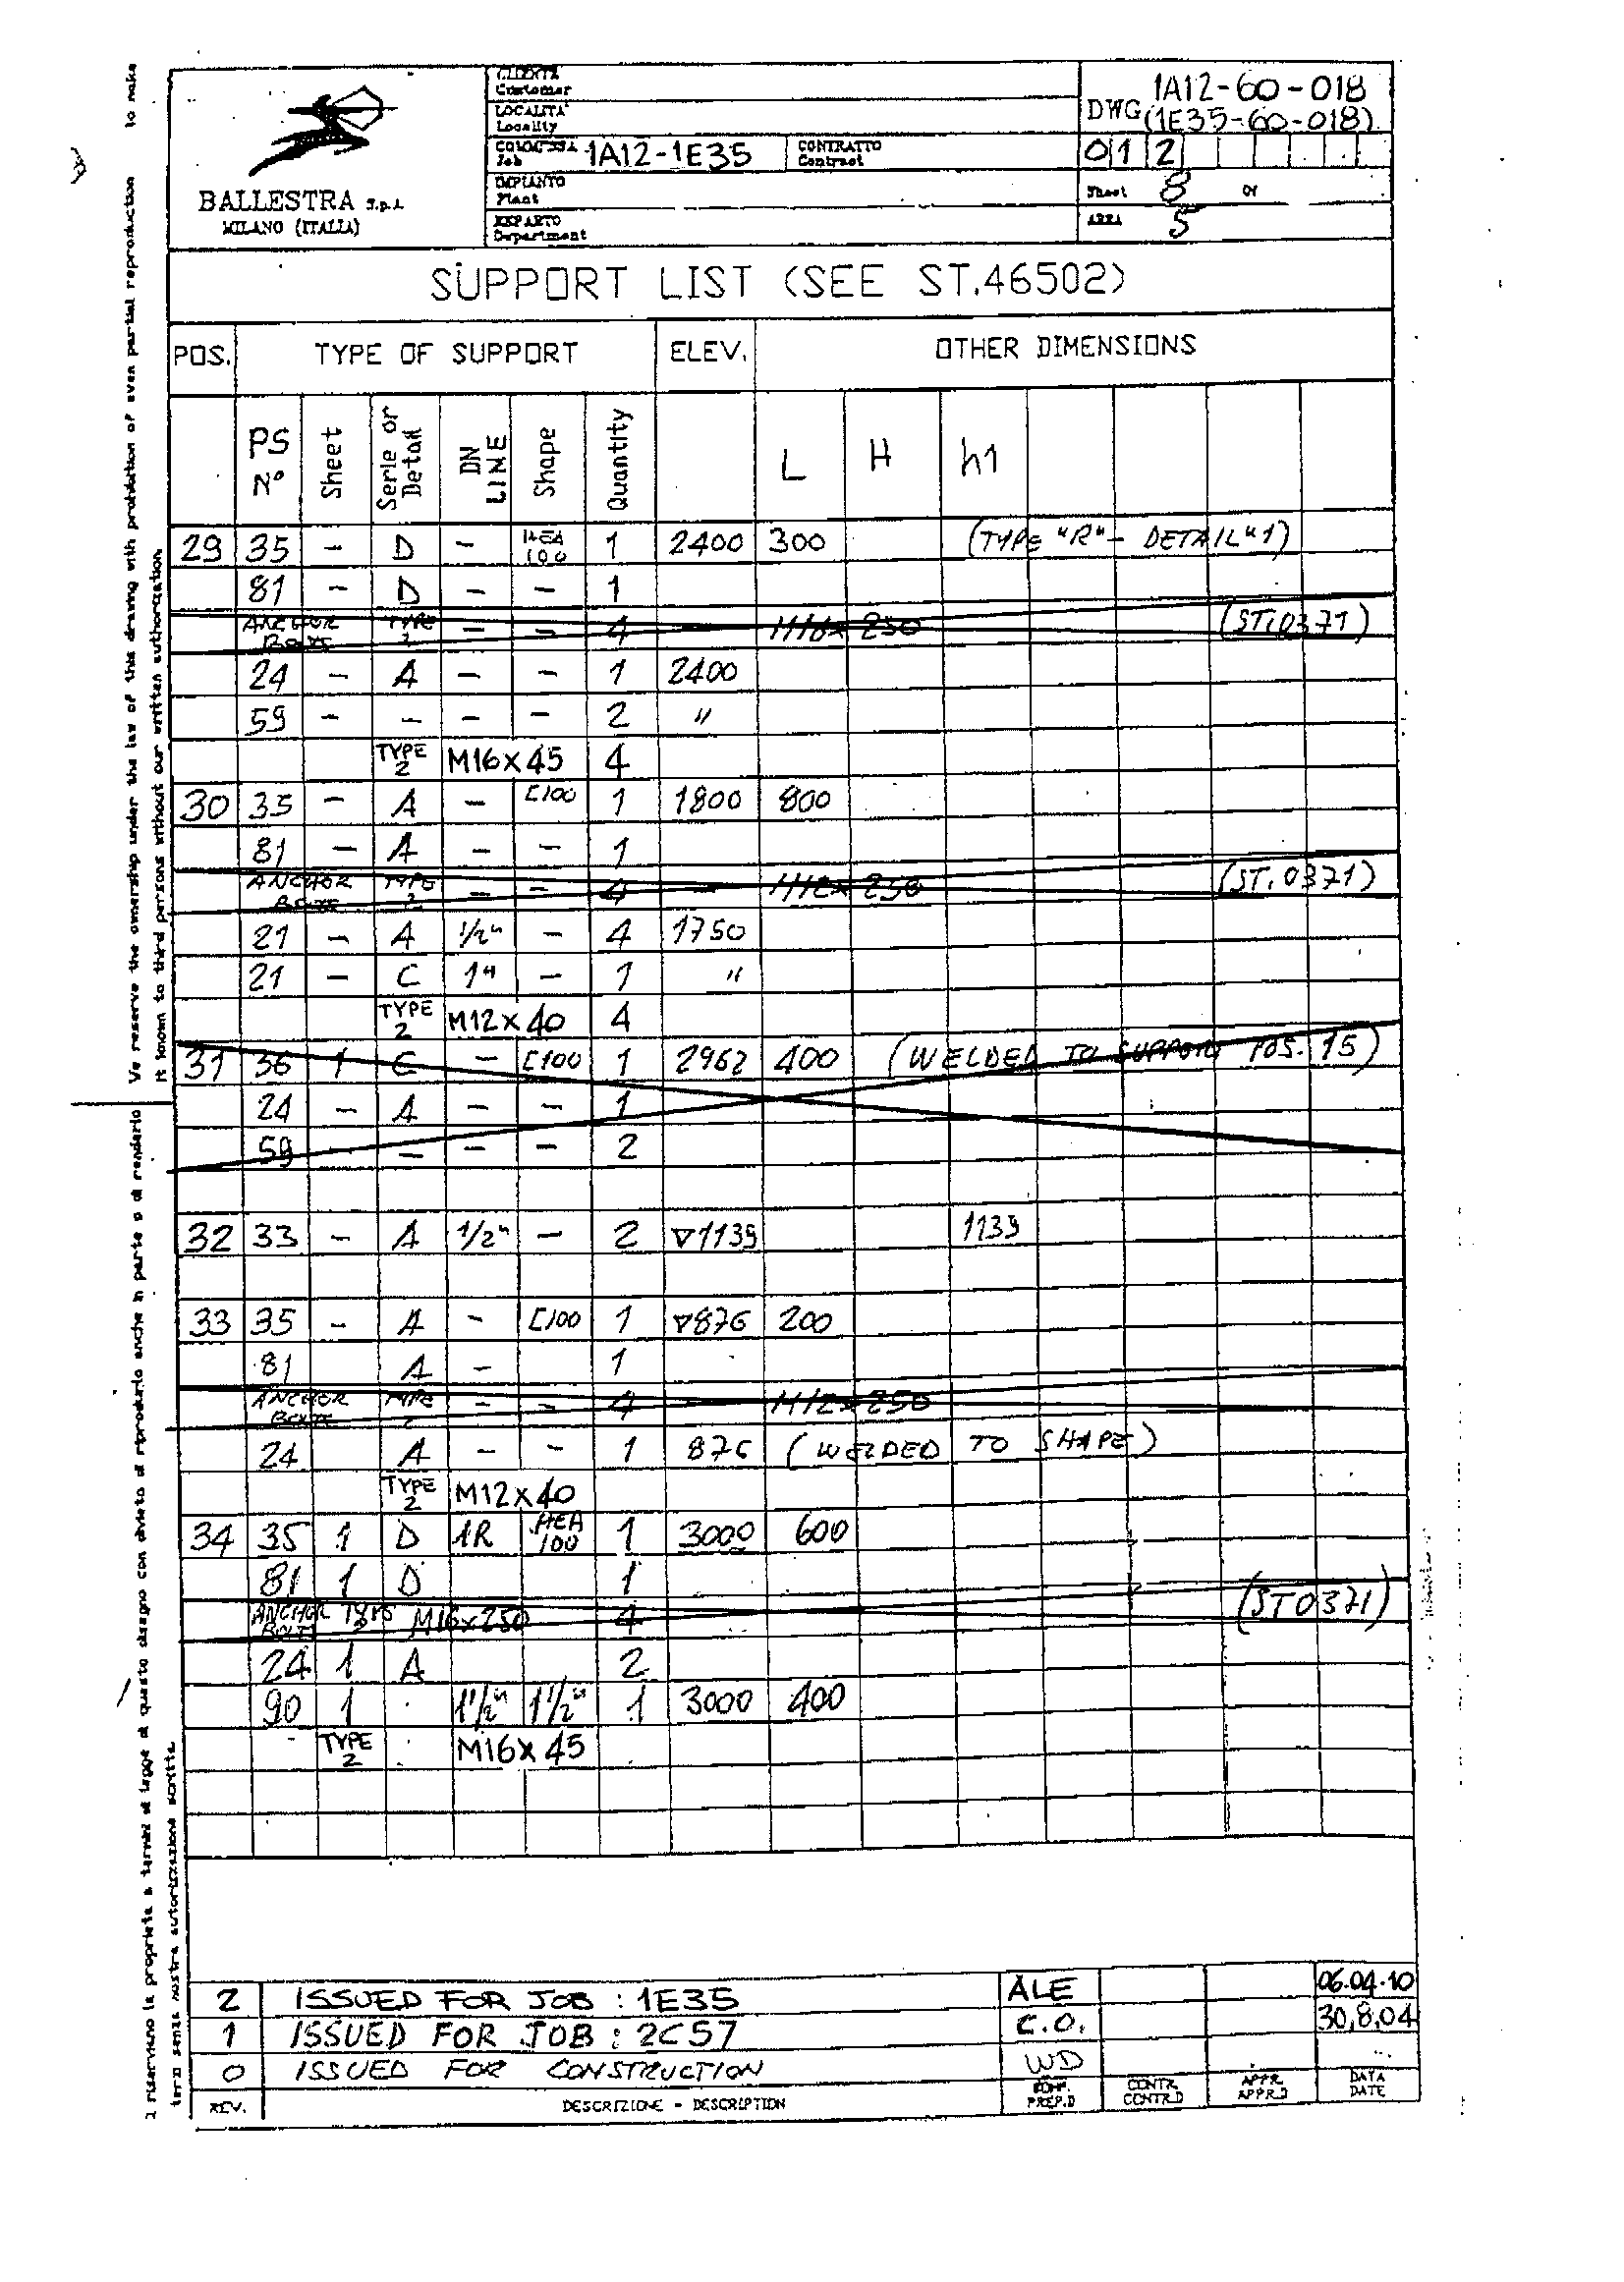 BALLESTRA S.p.A.
MILANO (ITALIA)
CLIENTE
Customer
LOCALITA'
Locality
COMMESSA
Job
1A12-1E35
CONTRATTO
Contract
IMPIANTO
Plant
REPARTO
Department
1A12-60-018
DWG (1E35-60-018)
0 1 2
Sheet 8 OF
AREA 5
SUPPORT LIST (SEE ST.46502)
POS. TYPE OF SUPPORT ELEV. OTHER DIMENSIONS
PS N° Sheet Serie or Detail DN LINE Shape Quantity L H h1
29 35 - D - HEA 100 1 2400 300 (TYPE "R" - DETAIL "1)
81 - D - - 1
ANCHOR BOLTS TYPE 2 - - 4 - M16x250 (ST.0371)
24 - A - - 1 2400
59 - - - - 2 "
TYPE 2 M16x45 4
30 35 - A - [100 1 1800 800
81 - A - - 1
ANCHOR BOLTS TYPE 2 - - 4 - M12x250 (ST.0371)
21 - A 1/2" - 4 1750
21 - C 1" - 1 "
TYPE 2 M12x40 4
31 36 1 C - [100 1 2962 400 (WELDED TO SUPPORT POS. 15)
24 - A - - 1
59 - - - 2
32 33 - A 1/2" - 2 ▽1139 1139
33 35 - A - [100 1 ▽876 200
81 A - 1
ANCHOR BOLTS TYPE 2 - - 4 M12x250
24 A - - 1 876 (WELDED TO SHAPE)
TYPE 2 M12x40
34 35 1 D 1R HEA 100 1 3000 600
81 1 D 1
ANCHOR BOLTS TYPE 2 M16x250 4 (ST0371)
24 1 A 2
90 1 1 1/2" 1 1/2" 1 3000 400
TYPE 2 M16x45
2 ISSUED FOR JOB : 1E35 ALE 06.04.10
1 ISSUED FOR JOB : 2C57 C.O. 30,8,04
0 ISSUED FOR CONSTRUCTION WD
REV. DESCRIZIONE - DESCRIPTION COMP. PREP.D CONTR. CONTR.D APPR. APPR.D DATA DATE
We reserve the ownership under the law of this drawing with prohibition of even partial reproduction to make
it known to third persons without our written authorization.
riserviamo la proprieta a termini di legge di questo disegno con divieto di riprodurlo anche in parte o di renderlo
terzi senza nostra autorizzazione scritta.